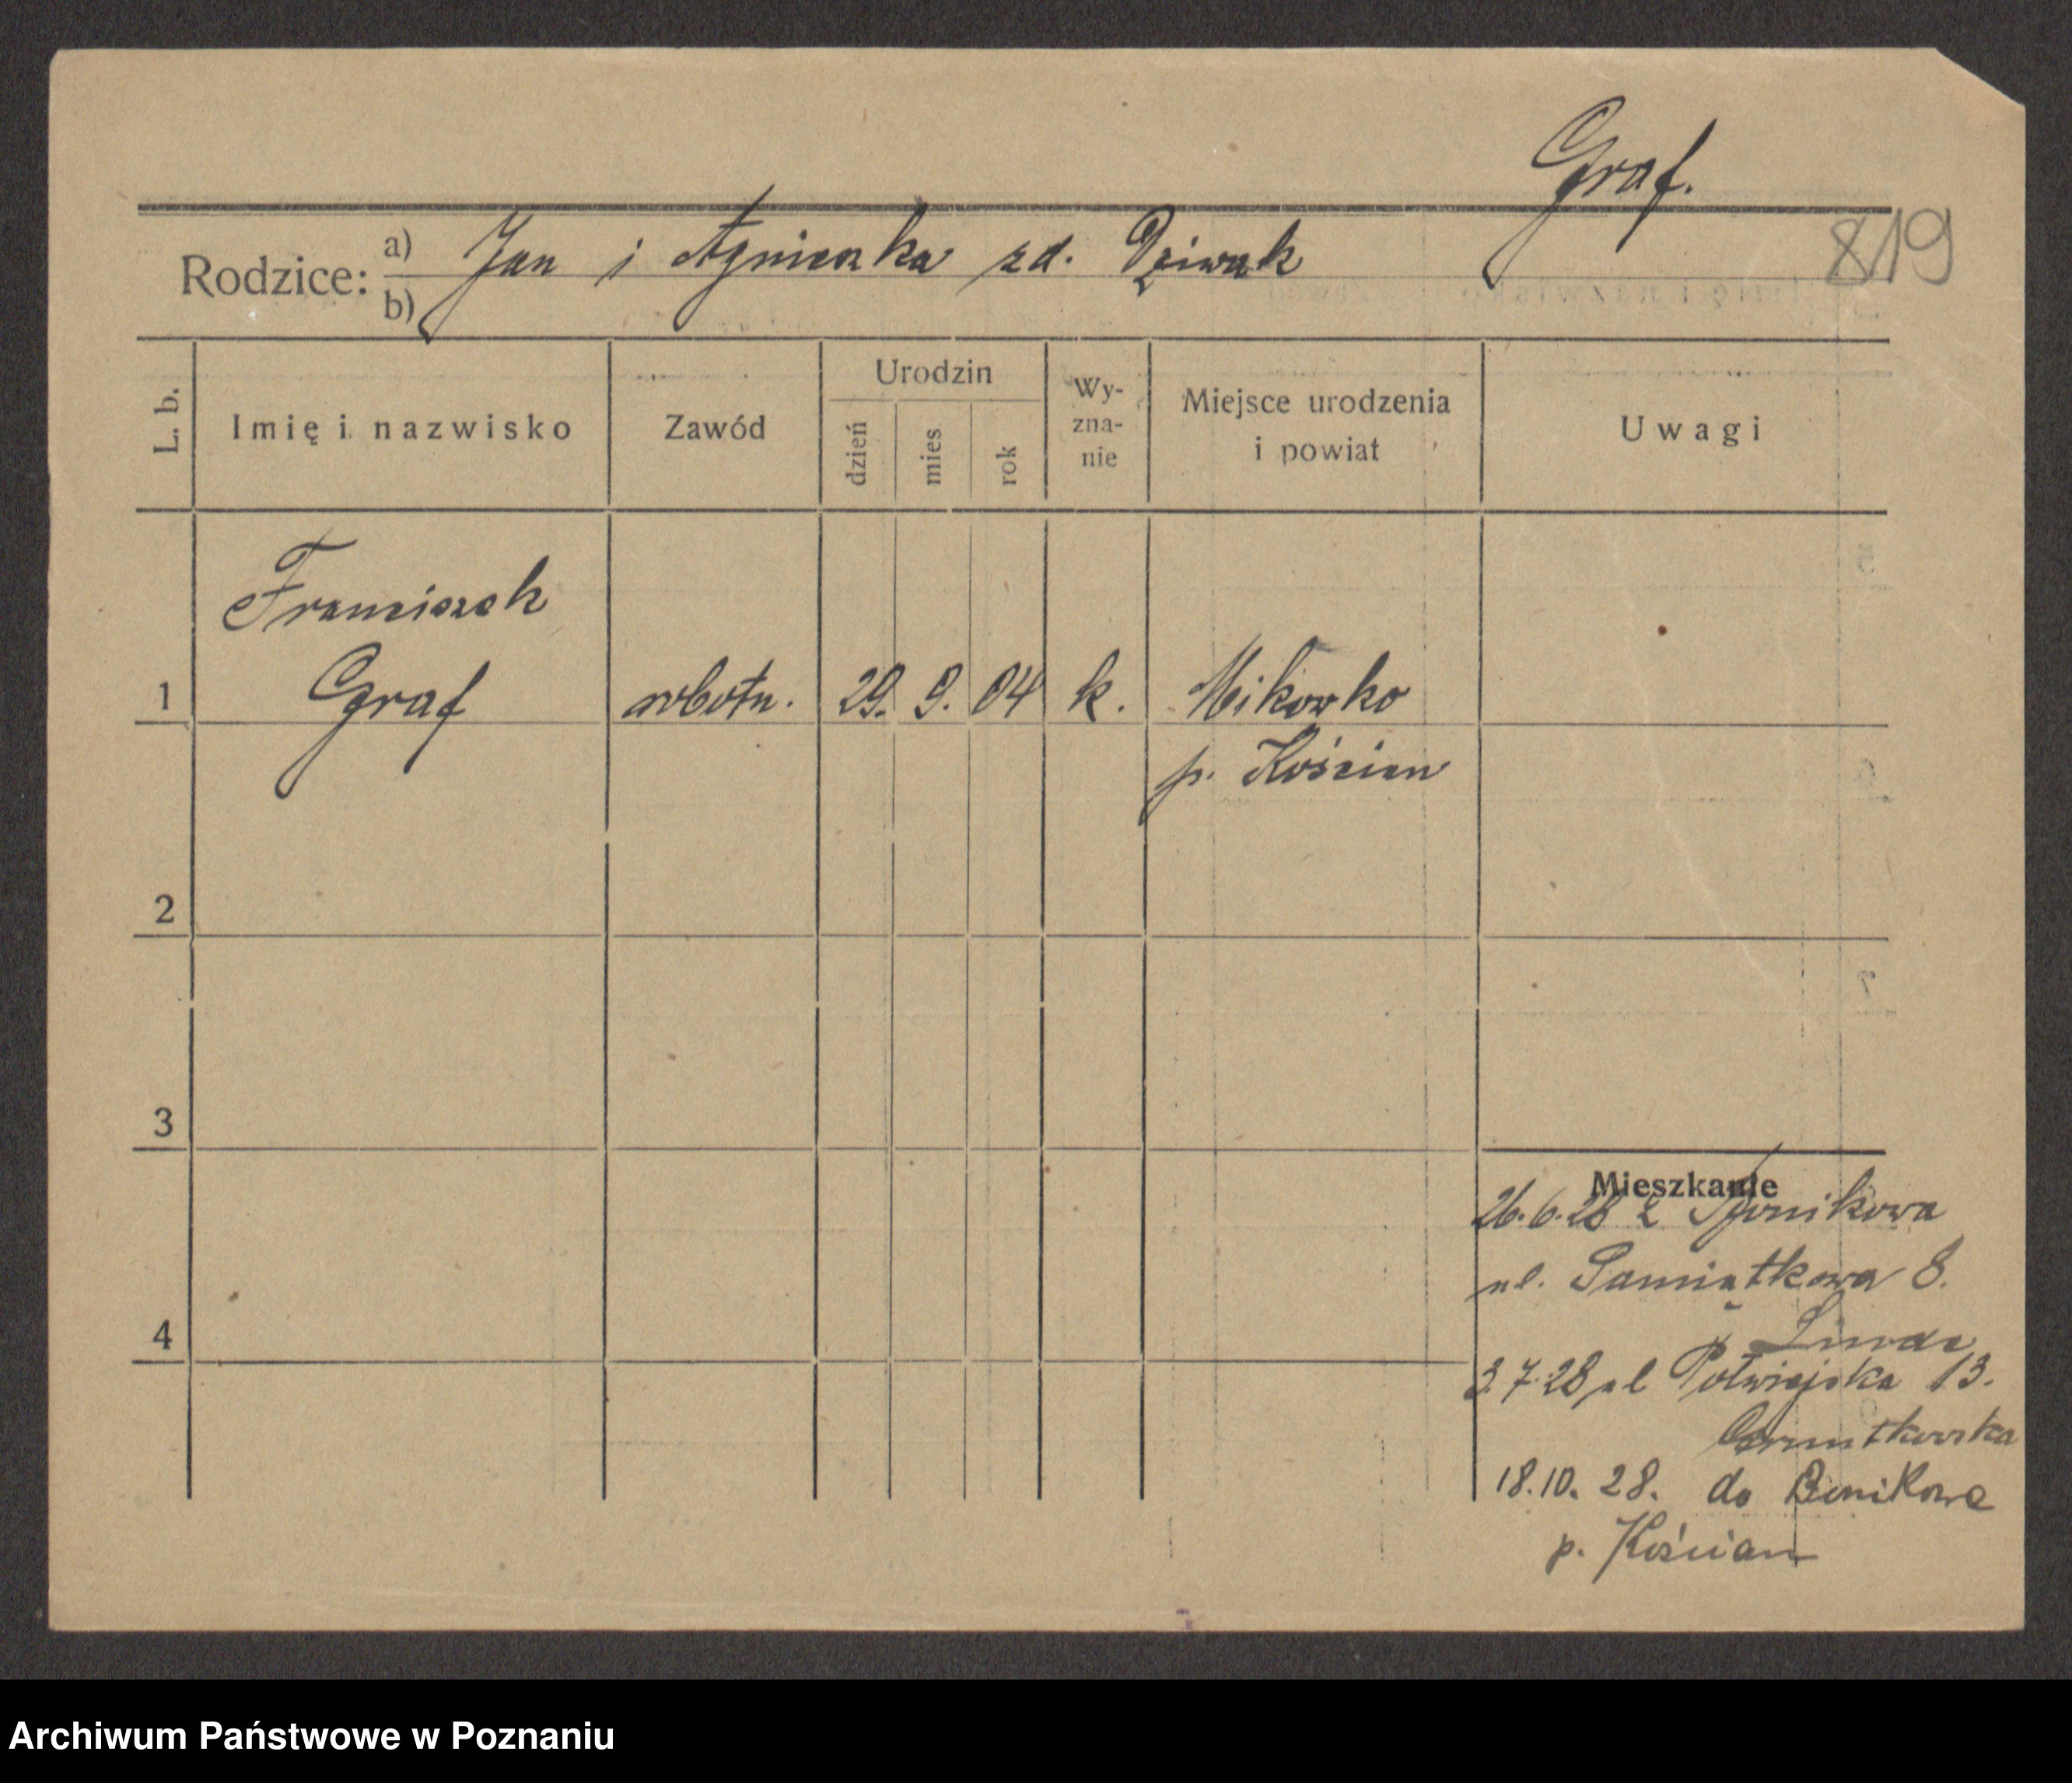 Graf.
819
Rodzice: a) Jan i Agnieszka zd. Dziwak
b)
L. b.
Imię i nazwisko
Zawód
Urodzin
dzień
mies
rok
Wy-
zna-
nie
Miejsce urodzenia
i powiat
Uwagi
Franciszek
1 Graf robotn. 29. 9. 04 k. Mikowko
p. Kościan
2
3
4
Mieszkanie
26.6.28 z
ul. Pamiątkowa 8.
3.7.28 ul Półwiejska 13.
18.10.28. do Bonikowa
p. Kościan
Archiwum Państwowe w Poznaniu